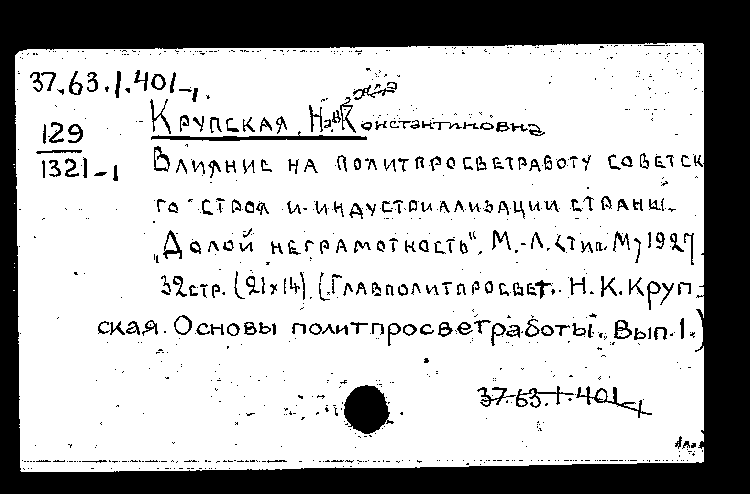 37.63.1.401-1.
129
1321-1
Крупская, Н. Константиновна
Влияние на политпросветработу советск
го строя и индустриализации страны.
"Долой неграмотность". М.-Л. <тип. М> 1927.
32стр. (21x14) (Главполитпросвет. Н.К.Круп-
ская. Основы политпросветработы. Вып.1.)
37.63.1.401-1